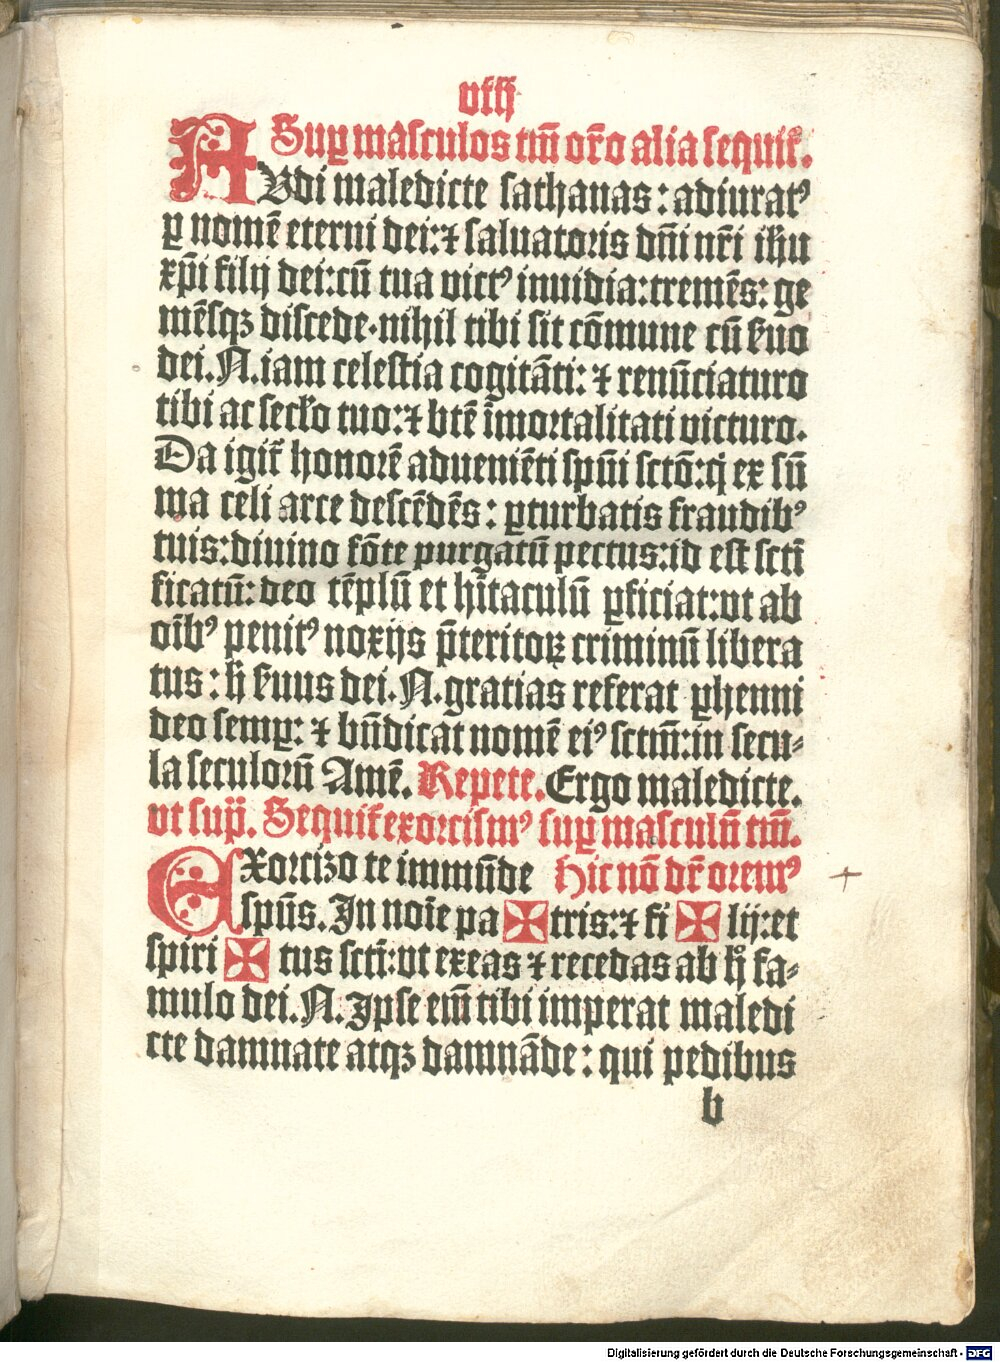 viij
Suꝑ masculos tm̄ or̄o alia sequit̄.
AUdi maledicte sathanas: adiuratꝰ
ꝑ nomē eterni dei: ⁊ saluatoris dn̄i nr̄i ih̄u
xp̄i filij dei: cū tua victꝰ inuidia: tremēs: ge
mēsqꝫ discede. nihil tibi sit cōmune cū ẜuo
dei. N. iam celestia cogitāti: ⁊ renūciaturo
tibi ac secl̄o tuo: ⁊ btē īmortalitati victuro.
Da igit̄ honorē adueniēti spūi sctō: q̇ ex sū
ma celi arce descēdēs: ꝑturbatis fraudibꝰ
tuis: diuino fōte purgatū pectus: id est sctī
ficatū: deo tēplū et hītaculū ꝑficiat: vt ab
oībꝰ penitꝰ noxijs p̄teritoꝝ criminū libera
tus: h̄ ẜuus dei. N. gratias referat ꝑhenni
deo semꝑ: ⁊ bn̄dicat nomē eiꝰ sctm̄: in secu⸗
la seculorū Amē. Repete. Ergo maledicte.
vt sup̄. Sequit̄ exorcismꝰ suꝑ masculū tm̄.
EXorcizo te immūde Hic nō dr̄ oremꝰ
spūs. In noīe pa ✠ tris: ⁊ fi ✠ lij: et
spiri ✠ tus sctī: vt exeas ⁊ recedas ab h̊ fa⸗
mulo dei. N. Ipse em̄ tibi imperat maledi
cte damnate atqꝫ damnāde: qui pedibus
b
Digitalisierung gefördert durch die Deutsche Forschungsgemeinschaft - DFG